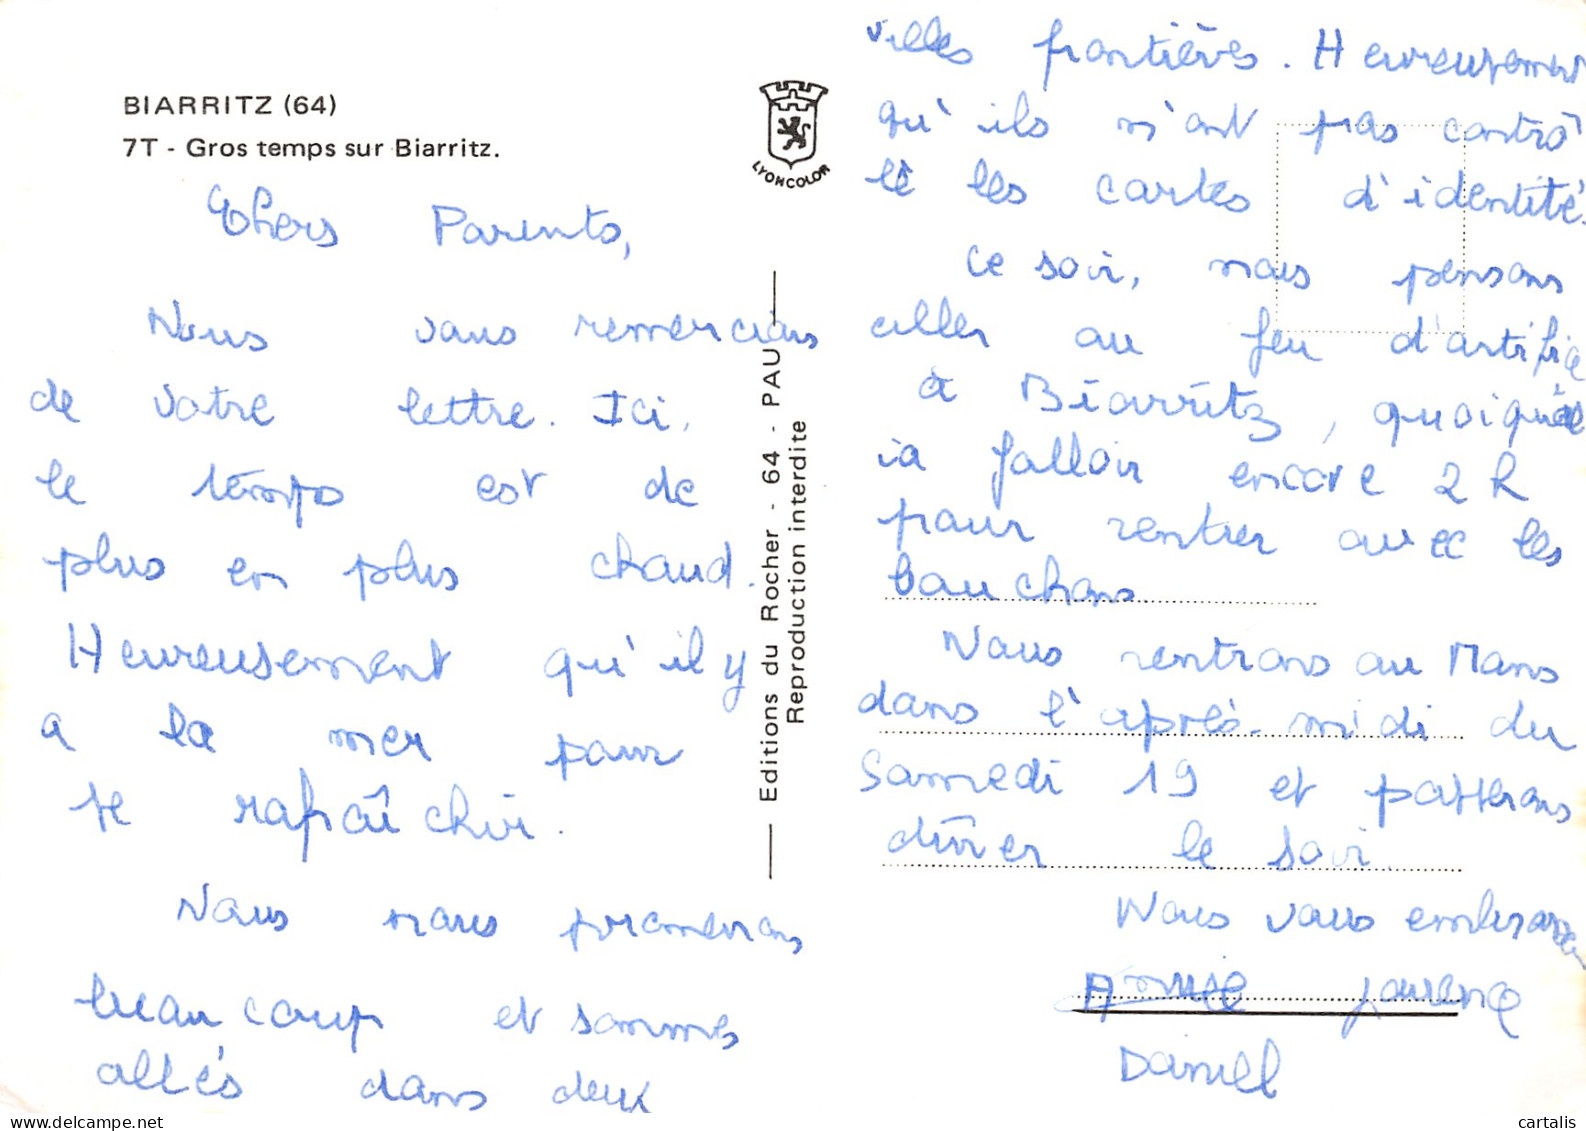 BIARRITZ (64)
7T - Gros temps sur Biarritz.
LYONCOLOR
Chers Parents,
Nous vous remercions
de votre lettre. Ici,
le temps est de
plus en plus chaud.
Heureusement qu'il y
a la mer pour
se rafraîchir.
Nous nous promenons
beaucoup et sommes
allés dans deux
Editions du Rocher - 64 - PAU
Reproduction interdite
villes frontières. Heureusement
qu'ils n'ont pas contrô
lé les cartes d'identité.
Ce soir, nous pensons
aller au feu d'artifice
à Biarritz, quoiqu'il
va falloir encore 2 h
pour rentrer avec les
bouchons.
Nous rentrons au Mans
dans l'après-midi du
Samedi 19 et passerons
dîner le soir.
Nous vous embrassons
Annie Laurence
Daniel
www.delcampe.net
cartalis